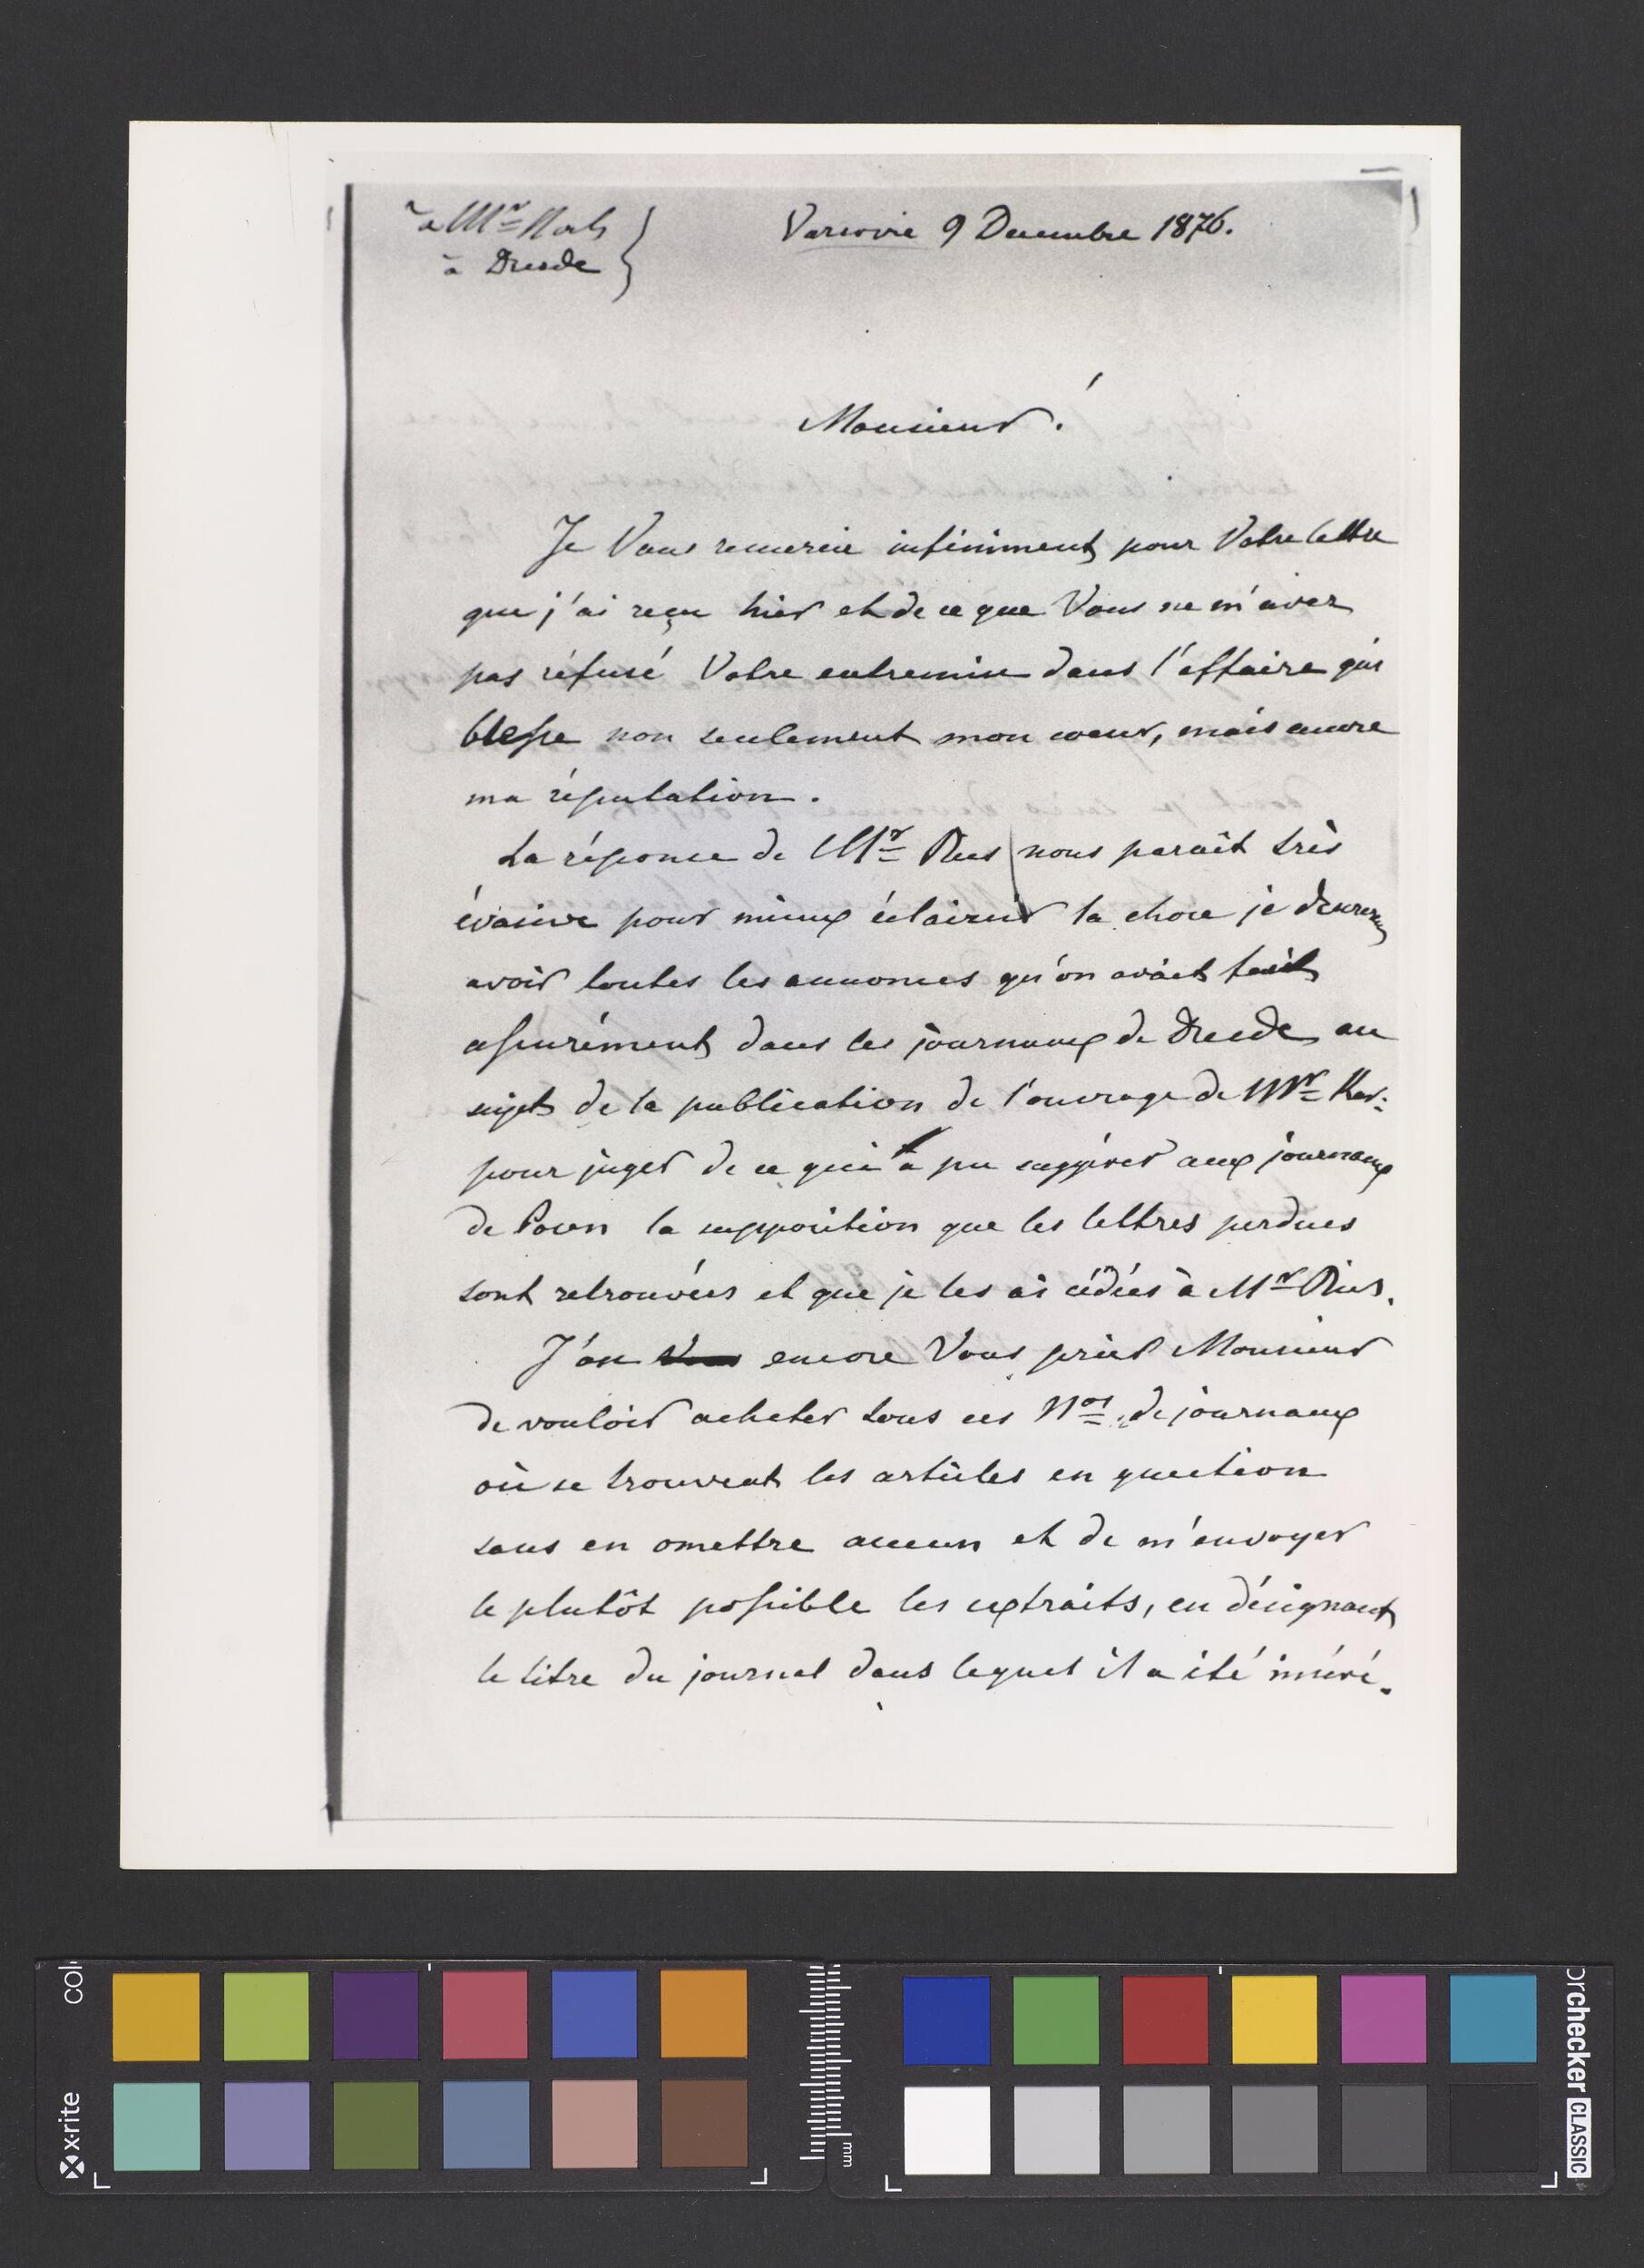 à Mr
à Dresde
Varsovie 9 Decembre 1876.
Monsieur!
Je Vous remercie infiniment pour Votre lettre
que j'ai reçu hier et de ce que Vous ne m'avez
pas réfusé Votre entremise dans l'affaire qui
blesse non seulement mon coeur, mais encore
ma réputation.
La réponse de Mr Ries nous parait très
évasive pour mieux éclaircir la chose je
avoir toutes les annonces qu'on avait fait
assurément dans les journaux de Dresde au
sujet de la publication de l'ouvrage de Mr Kar:
pour juger de ce qui a pu suggérer aux journaux
de Posen la supposition que les lettres perdues
sont retrouvées et que je les ai cédées à Mr Ries.
J'ôse encore Vous prier Monsieur
de vouloir acheter tous ces Nos de journaux
où se trouvent les articles en question
sans en omettre aucun et de m'envoyer
le plutôt possible les extraits, en désignant
le titre du journal dans lequel il a été inséré.
colo
x-rite
mm
orchecker CLASSIC